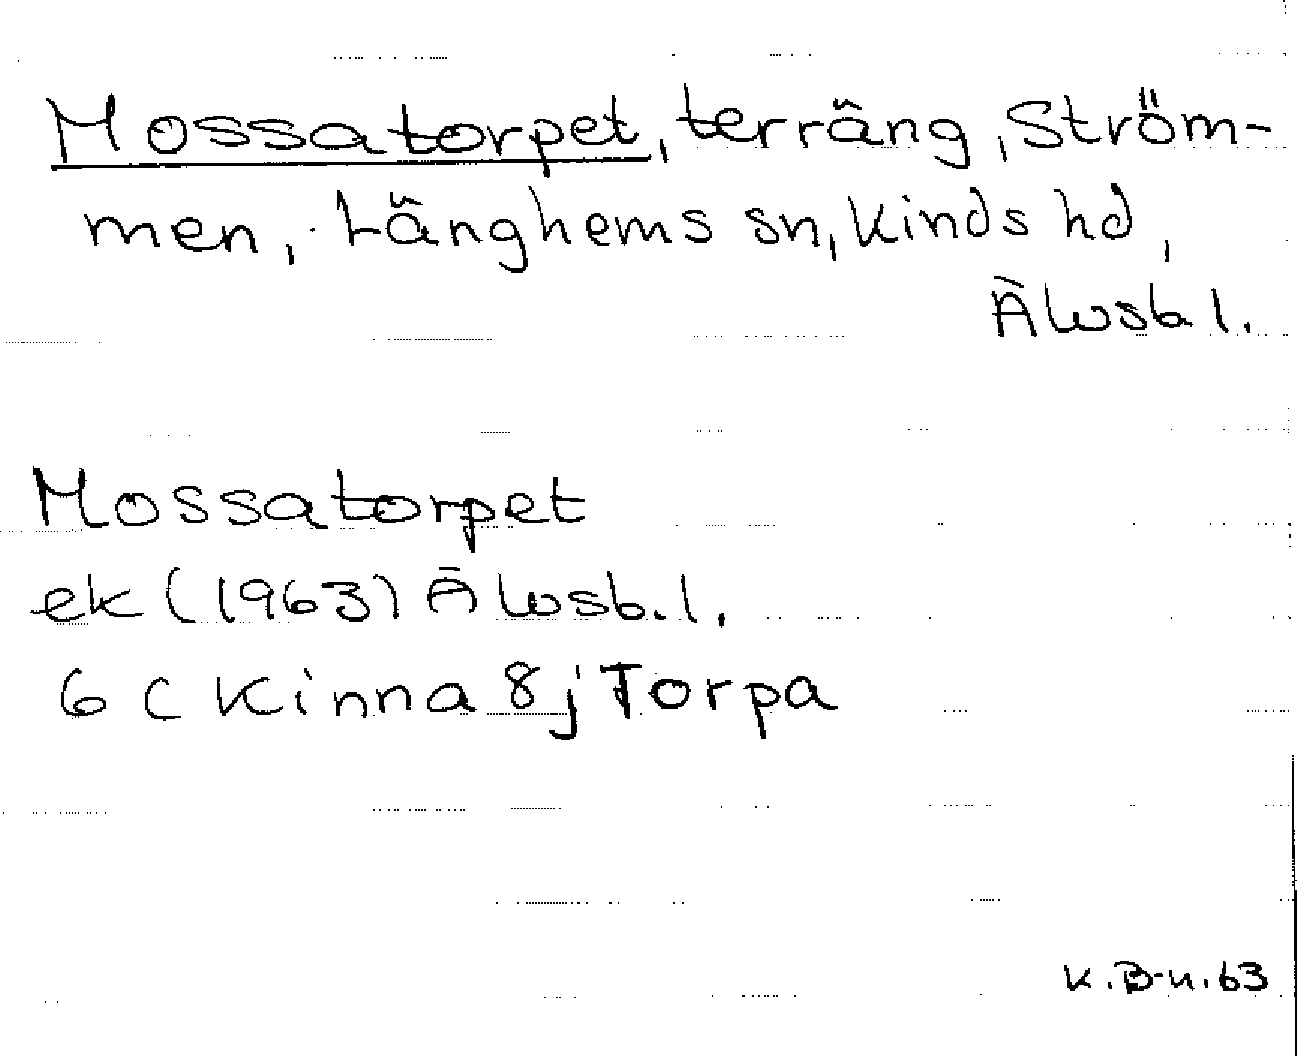 Mossatorpet, terräng, Ström-
men, Länghems sn, Kinds hd,
Älvsb l.
Mossatorpet
ek (1963) Älvsb. l.
6 C Kinna 8 j Torpa
K. B-n. 63